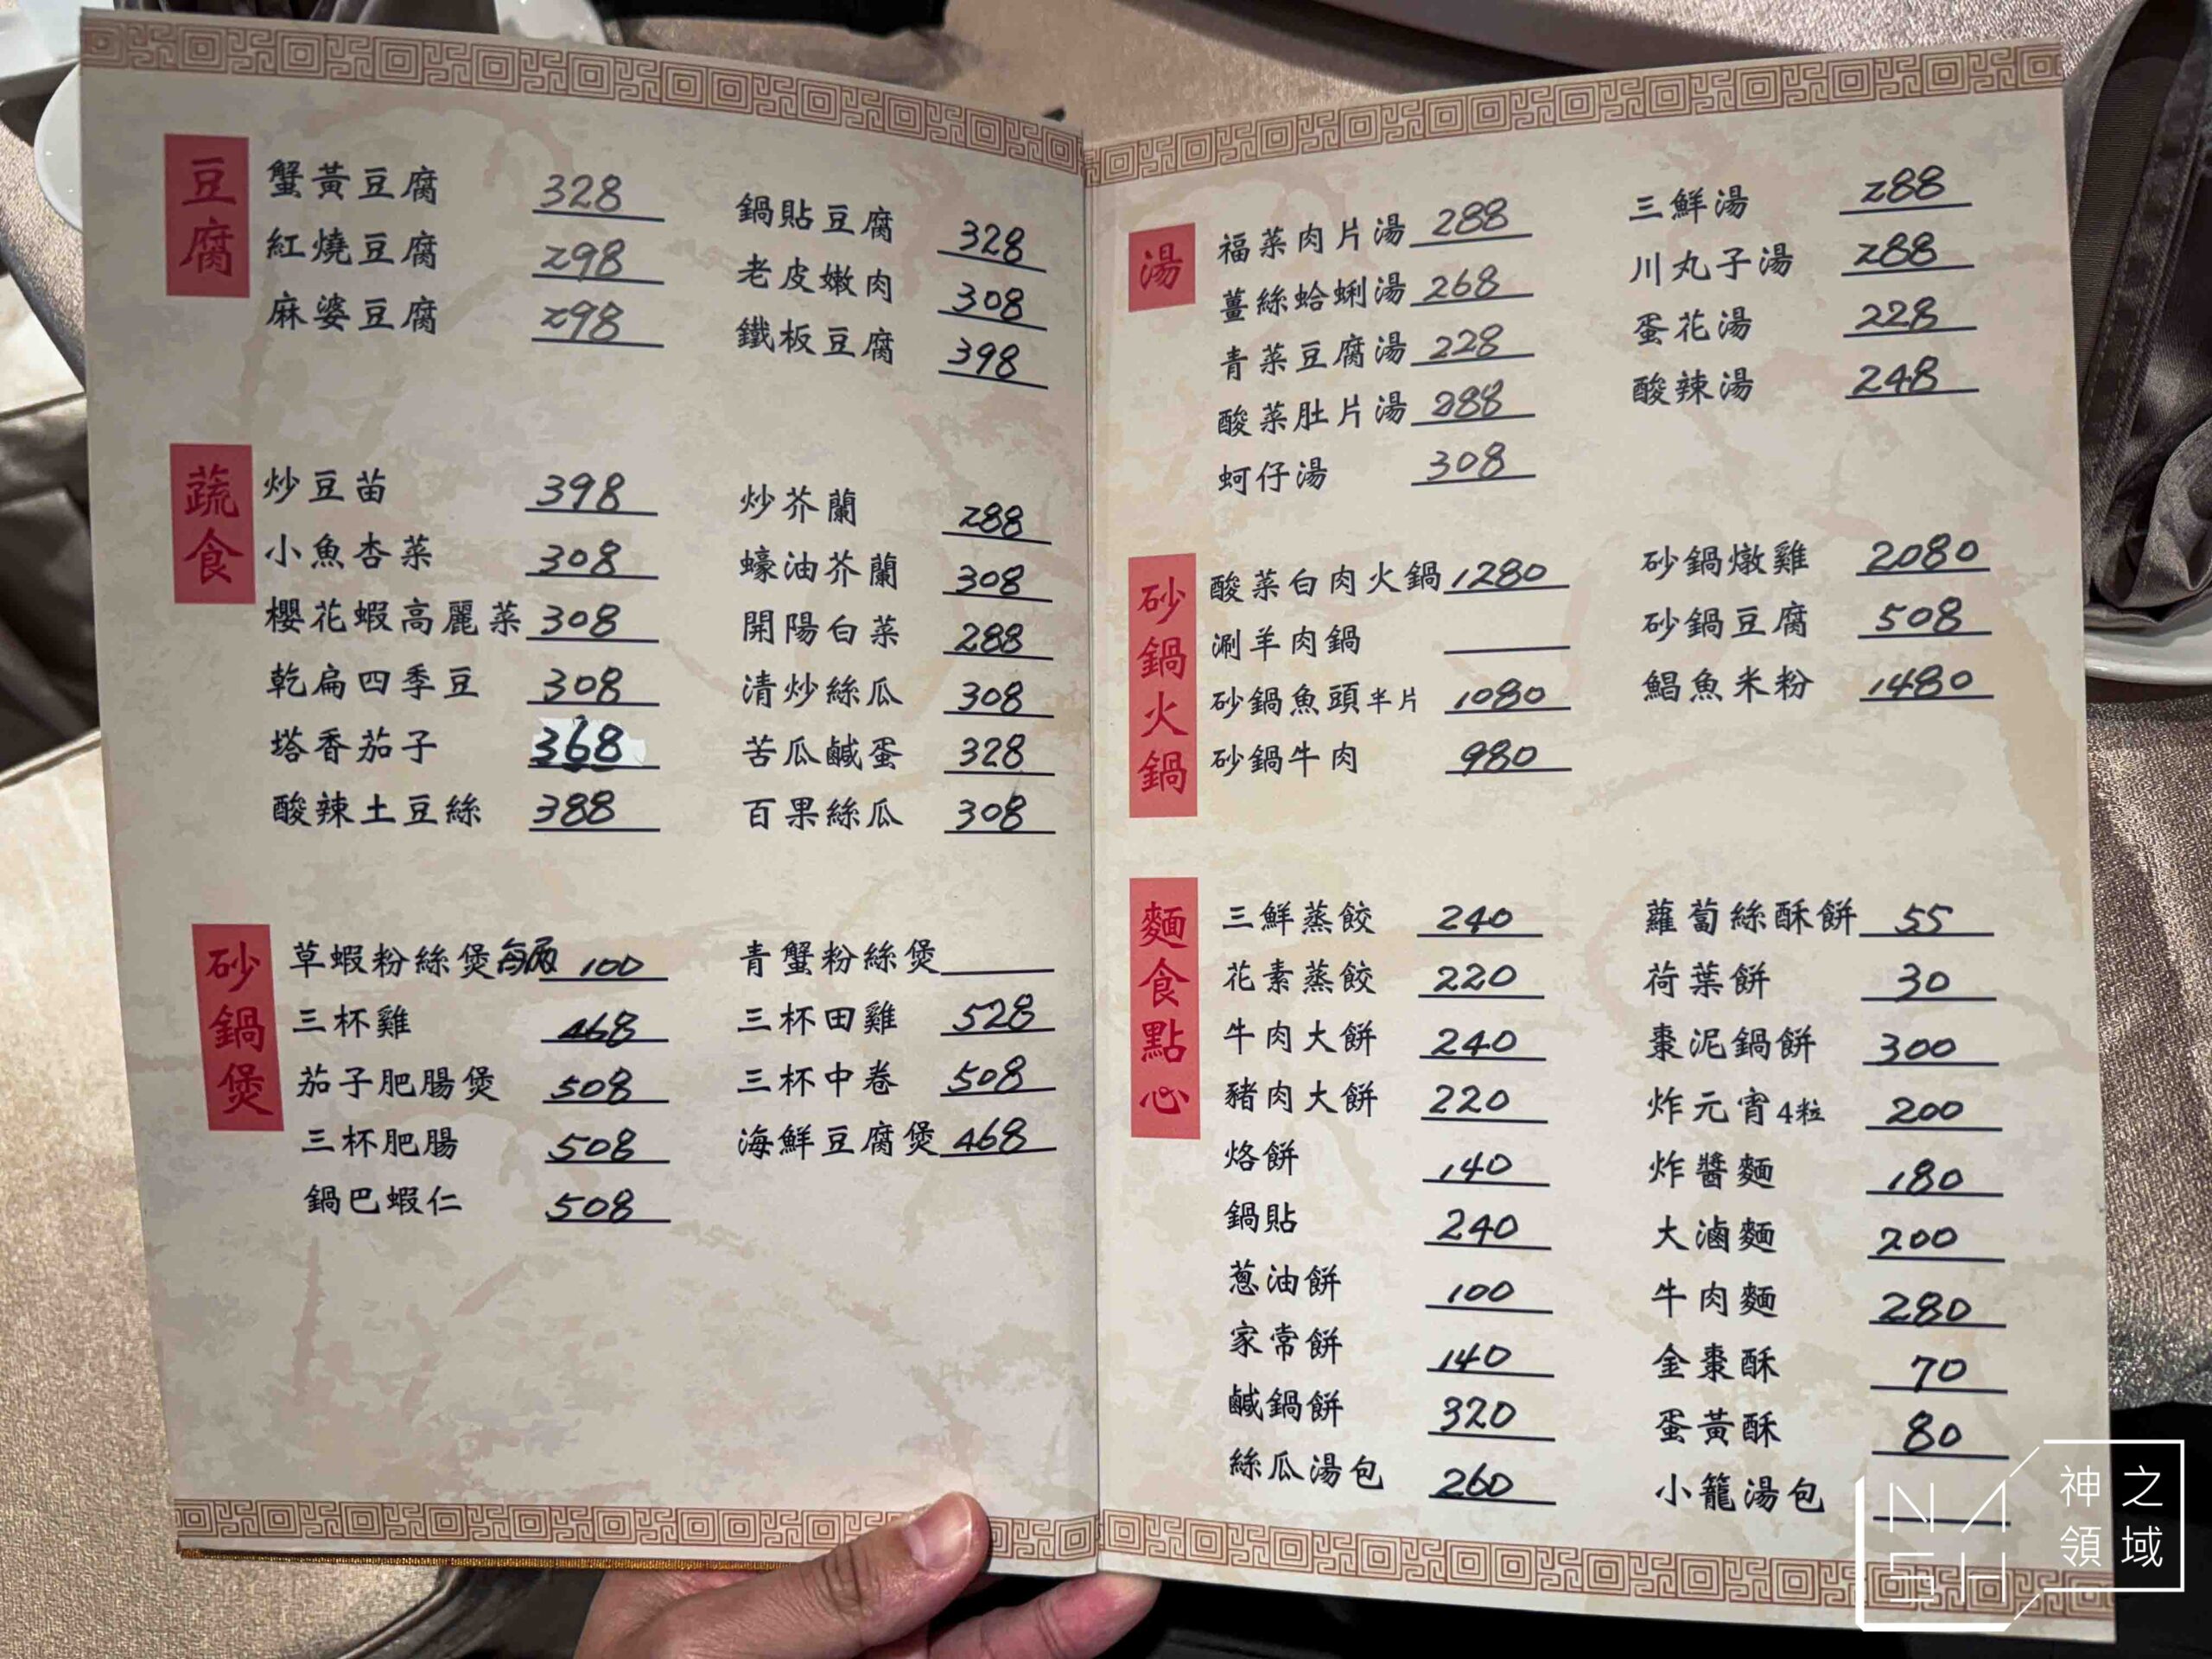 豆腐
蟹黃豆腐 328
紅燒豆腐 298
麻婆豆腐 298
鍋貼豆腐 328
老皮嫩肉 308
鐵板豆腐 398
蔬食
炒豆苗 398
小魚杏菜 308
櫻花蝦高麗菜 308
乾扁四季豆 308
塔香茄子 368
酸辣土豆絲 388
炒芥蘭 288
蠔油芥蘭 308
開陽白菜 288
清炒絲瓜 308
苦瓜鹹蛋 328
百果絲瓜 308
砂鍋煲
草蝦粉絲煲每兩 100
三杯雞 468
茄子肥腸煲 508
三杯肥腸 508
鍋巴蝦仁 508
青蟹粉絲煲
三杯田雞 528
三杯中卷 508
海鮮豆腐煲 468
湯
福菜肉片湯 288
薑絲蛤蜊湯 268
青菜豆腐湯 228
酸菜肚片湯 288
蚵仔湯 308
三鮮湯 288
川丸子湯 288
蛋花湯 228
酸辣湯 248
砂鍋火鍋
酸菜白肉火鍋 1280
涮羊肉鍋
砂鍋魚頭半片 1080
砂鍋牛肉 980
砂鍋燉雞 2080
砂鍋豆腐 508
鯧魚米粉 1480
麵食點心
三鮮蒸餃 240
花素蒸餃 220
牛肉大餅 240
豬肉大餅 220
烙餅 140
鍋貼 240
蔥油餅 100
家常餅 140
鹹鍋餅 320
絲瓜湯包 260
蘿蔔絲酥餅 55
荷葉餅 30
棗泥鍋餅 300
炸元宵4粒 200
炸醬麵 180
大滷麵 200
牛肉麵 280
金棗酥 70
蛋黃酥 80
小籠湯包
NASH
神之
領域